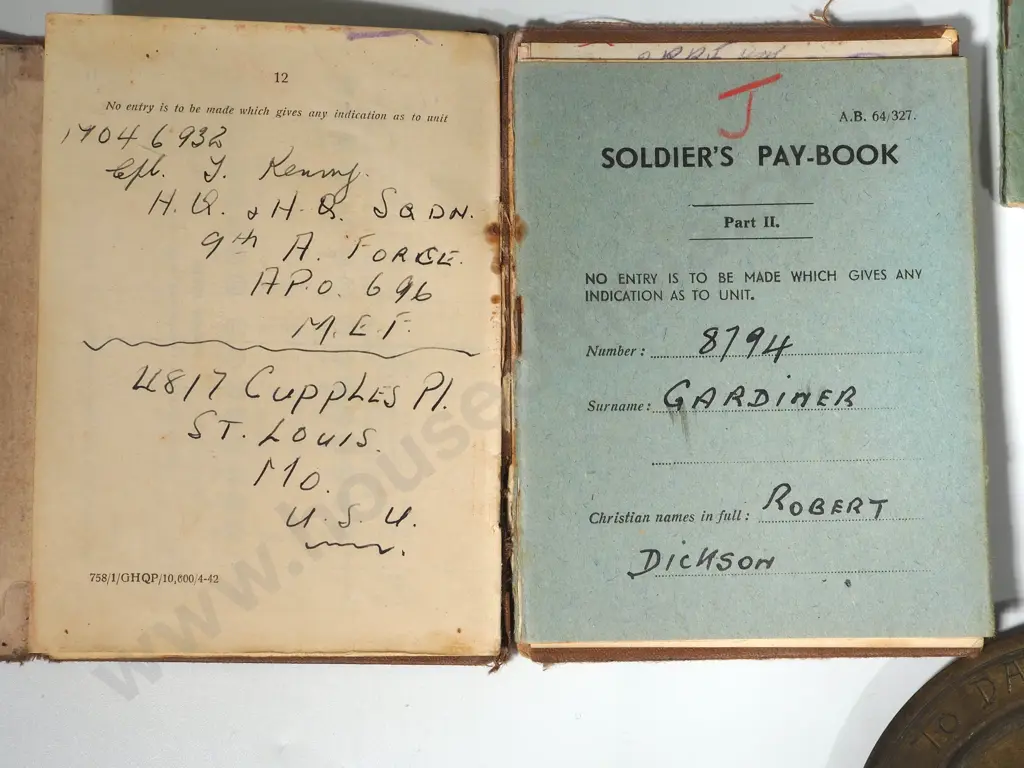 12
No entry is to be made which gives any indication as to unit
17046932
Cpl. J. Kenny.
H.Q. & H.Q. SQDN.
9th A. FORCE.
A.P.O. 696
M.E.F.
4817 CUPPLES Pl.
ST. LOUIS.
MO.
U.S.U.
758/1/GHQP/10,600/4-42
J
A.B. 64/327.
SOLDIER'S PAY-BOOK
Part II.
NO ENTRY IS TO BE MADE WHICH GIVES ANY
INDICATION AS TO UNIT.
Number: 8794
Surname: GARDINER
Christian names in full: ROBERT
DICKSON
TO DA